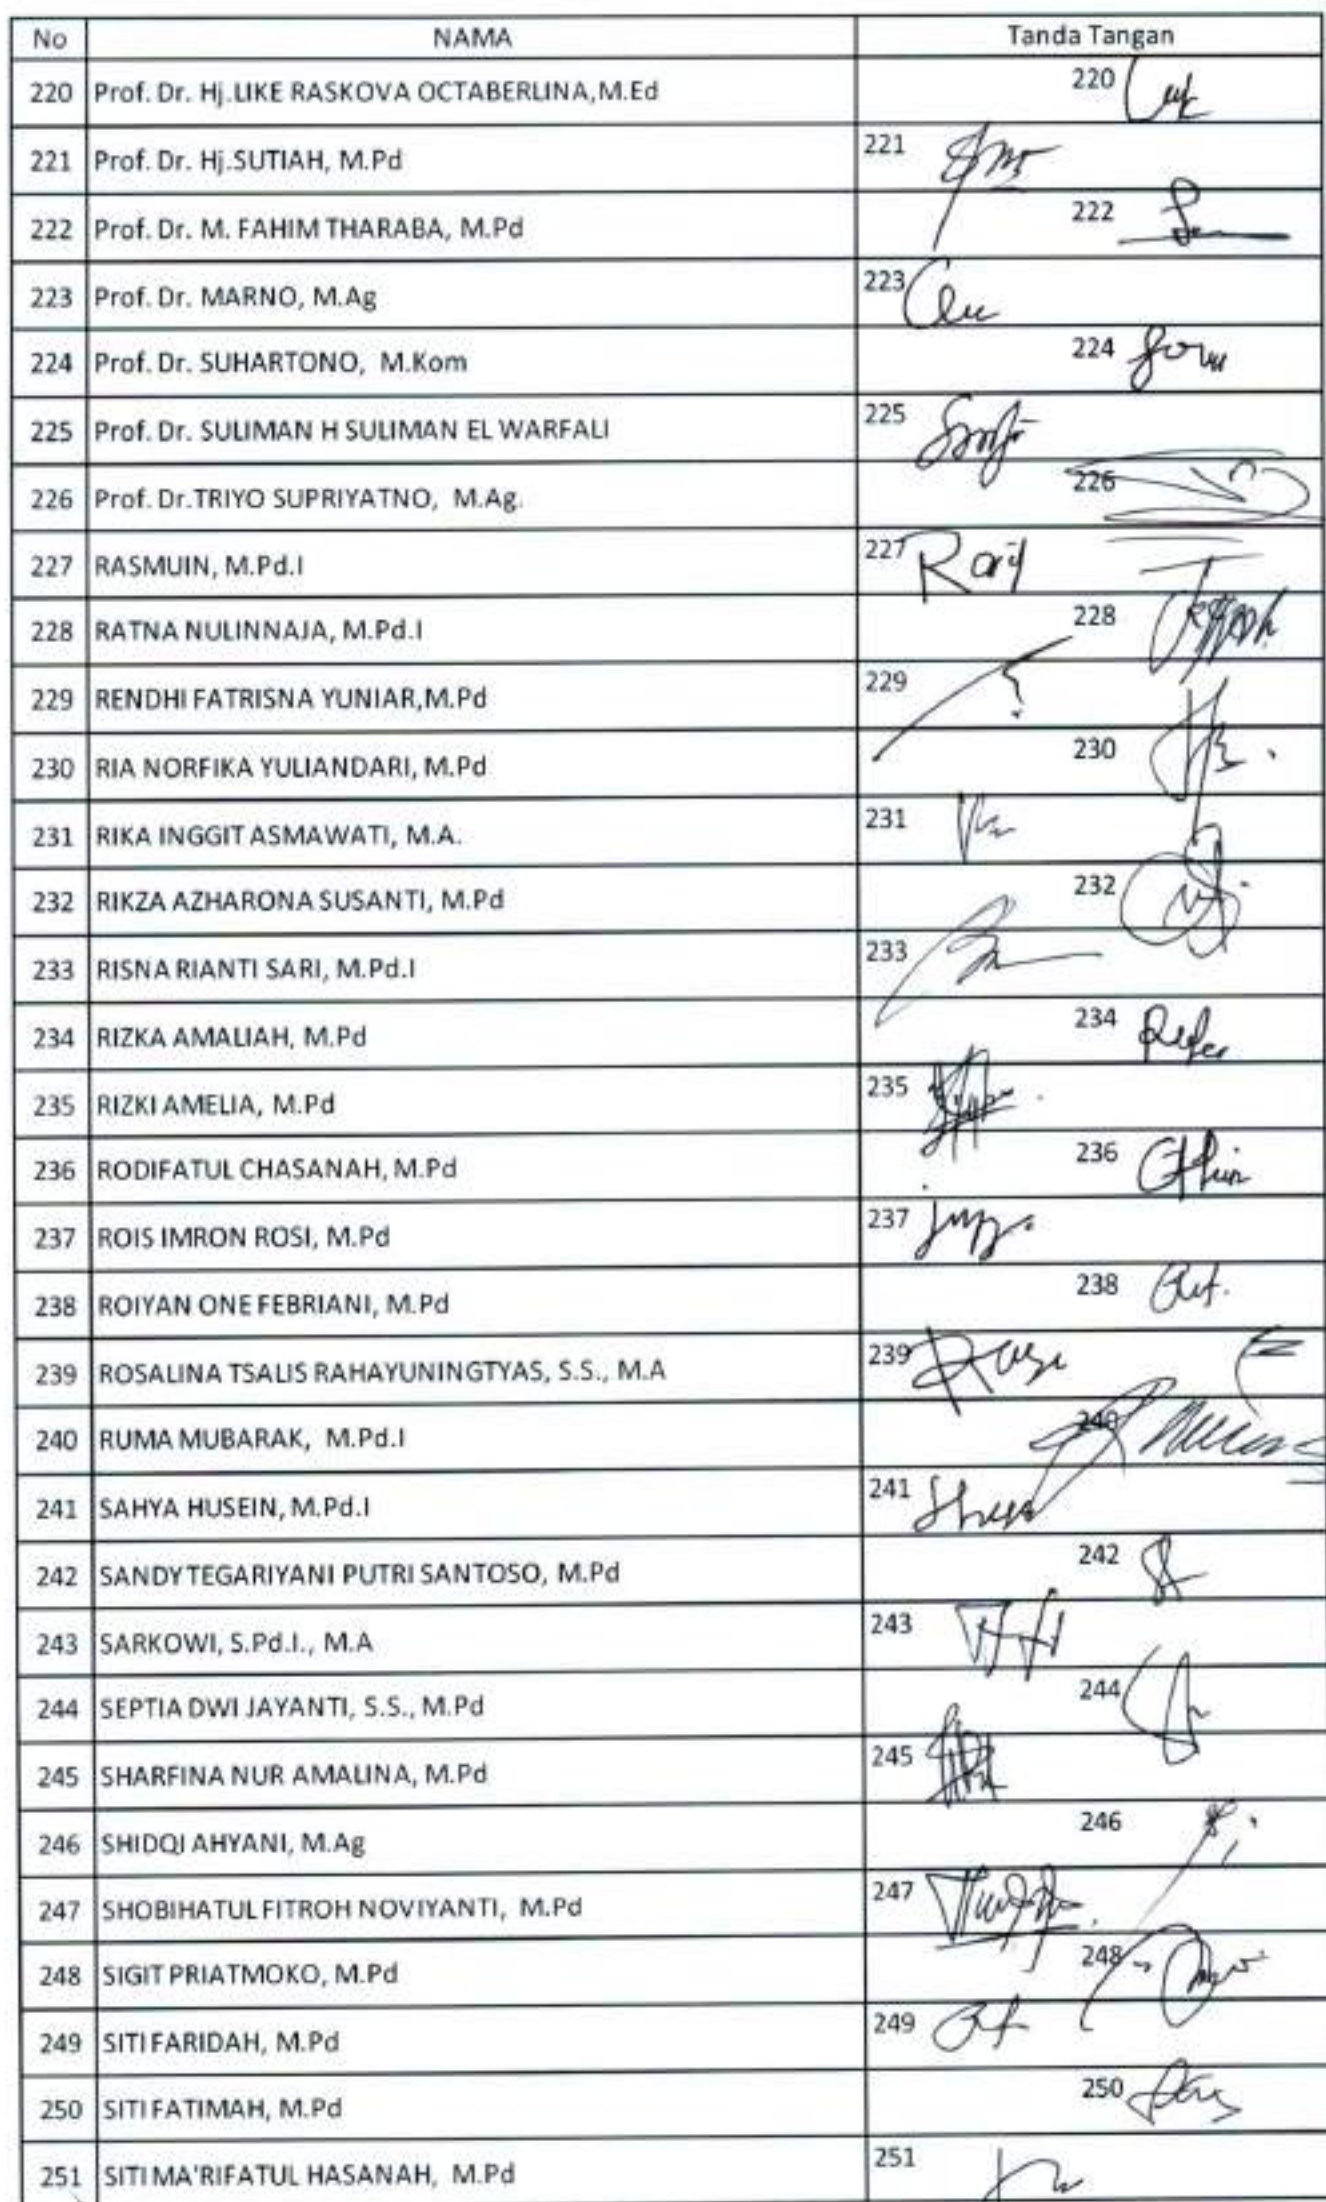 No NAMA Tanda Tangan
220 Prof. Dr. Hj.LIKE RASKOVA OCTABERLINA,M.Ed 220
221 Prof. Dr. Hj.SUTIAH, M.Pd 221
222 Prof. Dr. M. FAHIM THARABA, M.Pd 222
223 Prof. Dr. MARNO, M.Ag 223
224 Prof. Dr. SUHARTONO, M.Kom 224
225 Prof. Dr. SULIMAN H SULIMAN EL WARFALI 225
226 Prof. Dr.TRIYO SUPRIYATNO, M.Ag. 226
227 RASMUIN, M.Pd.I 227
228 RATNA NULINNAJA, M.Pd.I 228
229 RENDHI FATRISNA YUNIAR,M.Pd 229
230 RIA NORFIKA YULIANDARI, M.Pd 230
231 RIKA INGGIT ASMAWATI, M.A. 231
232 RIKZA AZHARONA SUSANTI, M.Pd 232
233 RISNA RIANTI SARI, M.Pd.I 233
234 RIZKA AMALIAH, M.Pd 234
235 RIZKI AMELIA, M.Pd 235
236 RODIFATUL CHASANAH, M.Pd 236
237 ROIS IMRON ROSI, M.Pd 237
238 ROIYAN ONE FEBRIANI, M.Pd 238
239 ROSALINA TSALIS RAHAYUNINGTYAS, S.S., M.A 239
240 RUMA MUBARAK, M.Pd.I 240
241 SAHYA HUSEIN, M.Pd.I 241
242 SANDY TEGARIYANI PUTRI SANTOSO, M.Pd 242
243 SARKOWI, S.Pd.I., M.A 243
244 SEPTIA DWI JAYANTI, S.S., M.Pd 244
245 SHARFINA NUR AMALINA, M.Pd 245
246 SHIDQI AHYANI, M.Ag 246
247 SHOBIHATUL FITROH NOVIYANTI, M.Pd 247
248 SIGIT PRIATMOKO, M.Pd 248
249 SITI FARIDAH, M.Pd 249
250 SITI FATIMAH, M.Pd 250
251 SITI MA'RIFATUL HASANAH, M.Pd 251